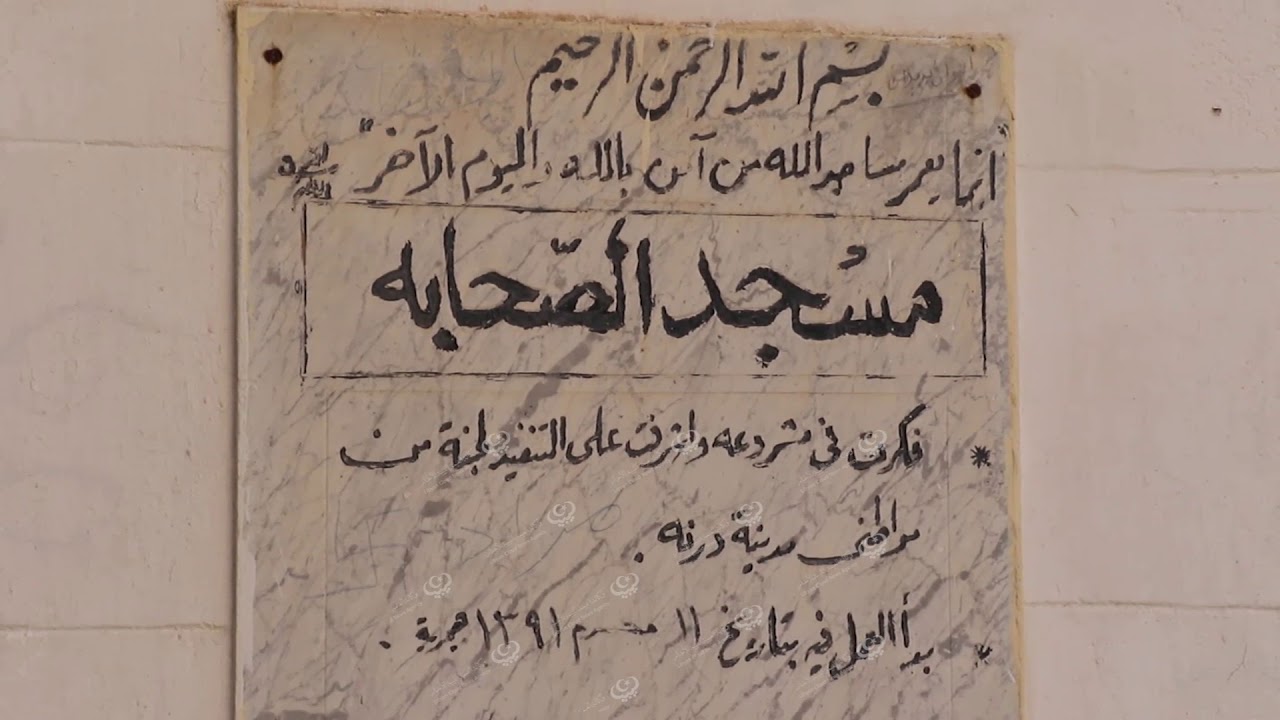 بسم الله الرحمن الرحيم
"انما يعمر مساجد الله من آمن بالله واليوم الآخر"
مسجد الصحابه
* فكرت في مشروعه واشرفت على التنفيذ لجنة من
مواطني مدينة درنه .
* بدأ العمل فيه بتاريخ ١١ محرم ١٣٩١ هجرية .